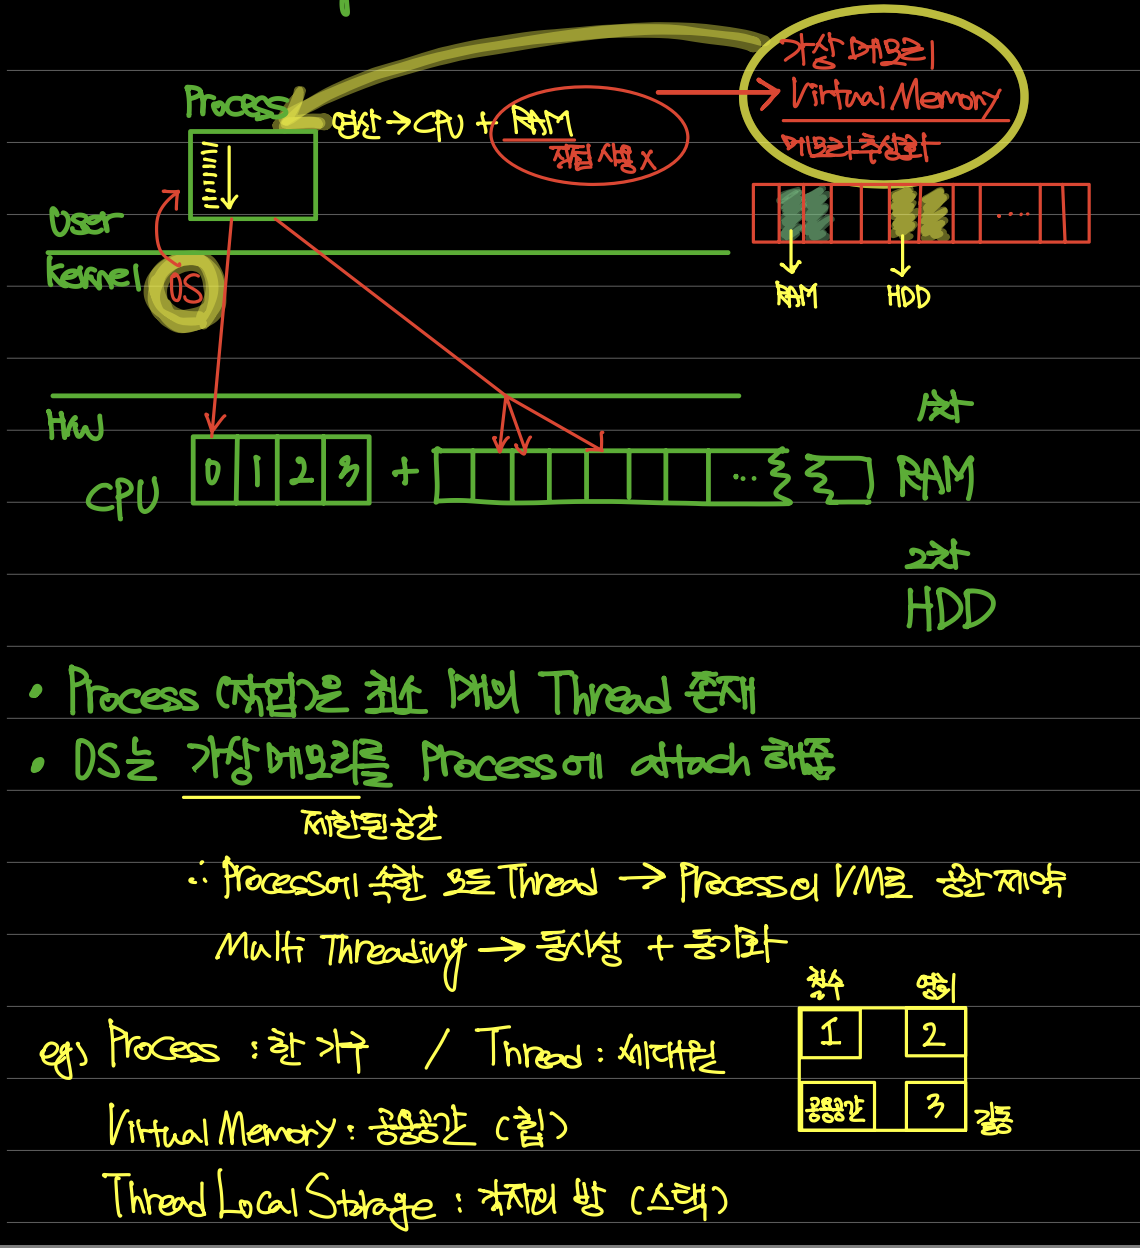 가상 메모리
Virtual Memory
메모리 추상화
Process
연산 → CPU + RAM
직접 사용 X
User
Kernel
OS
RAM
HDD
H/W
CPU
0 1 2 3 + ...
1차
RAM
2차
HDD
• Process (작업)은 최소 1개의 Thread 존재
• OS는 가상 메모리를 Process에 attach 해줌
제한된 공간
∴ Process에 속한 모든 Thread → Process의 VM로 공간 제약
Multi Threading → 동시성 + 동기화
철수 영희
1 2
공용공간 3 길동
eg) Process : 한 가구 / Thread : 세대원
Virtual Memory : 공용공간 (힙)
Thread Local Storage : 각자의 방 (스택)